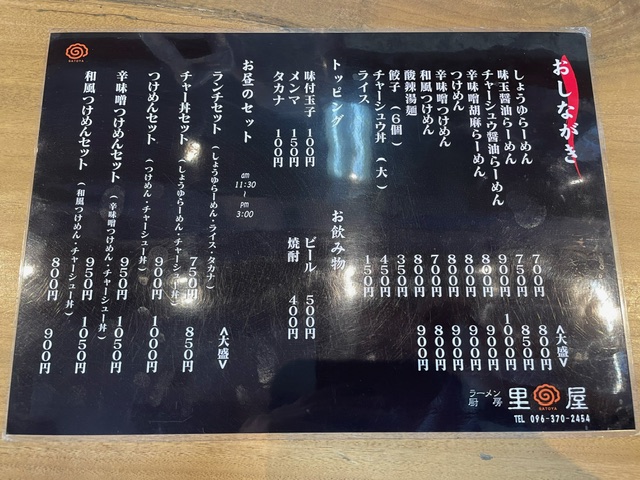 おしながき
<大盛>
しょうゆらーめん 700円 800円
味玉醤油らーめん 750円 850円
チャーシュウ醤油らーめん 900円 1000円
辛味噌胡麻らーめん 800円 900円
つけめん 800円 900円
辛味噌つけめん 800円 900円
和風つけめん 700円 800円
酸辣湯麺 800円 900円
餃子(6個) 350円
チャーシュウ丼(大) 450円
ライス 150円
トッピング
味付玉子 100円
メンマ 150円
タカナ 100円
お飲み物
ビール 500円
焼酎 400円
お昼のセット
am
11:30
~
pm
3:00
<大盛>
ランチセット(しょうゆらーめん・ライス・タカナ) 750円 850円
チャー丼セット(しょうゆらーめん・チャーシュー丼) 900円 1000円
つけめんセット(つけめん・チャーシュー丼) 950円 1050円
辛味噌つけめんセット(辛味噌つけめん・チャーシュー丼) 950円 1050円
和風つけめんセット(和風つけめん・チャーシュー丼) 800円 900円
SATOYA
ラーメン
厨房
里屋
SATOYA
TEL 096-370-2454